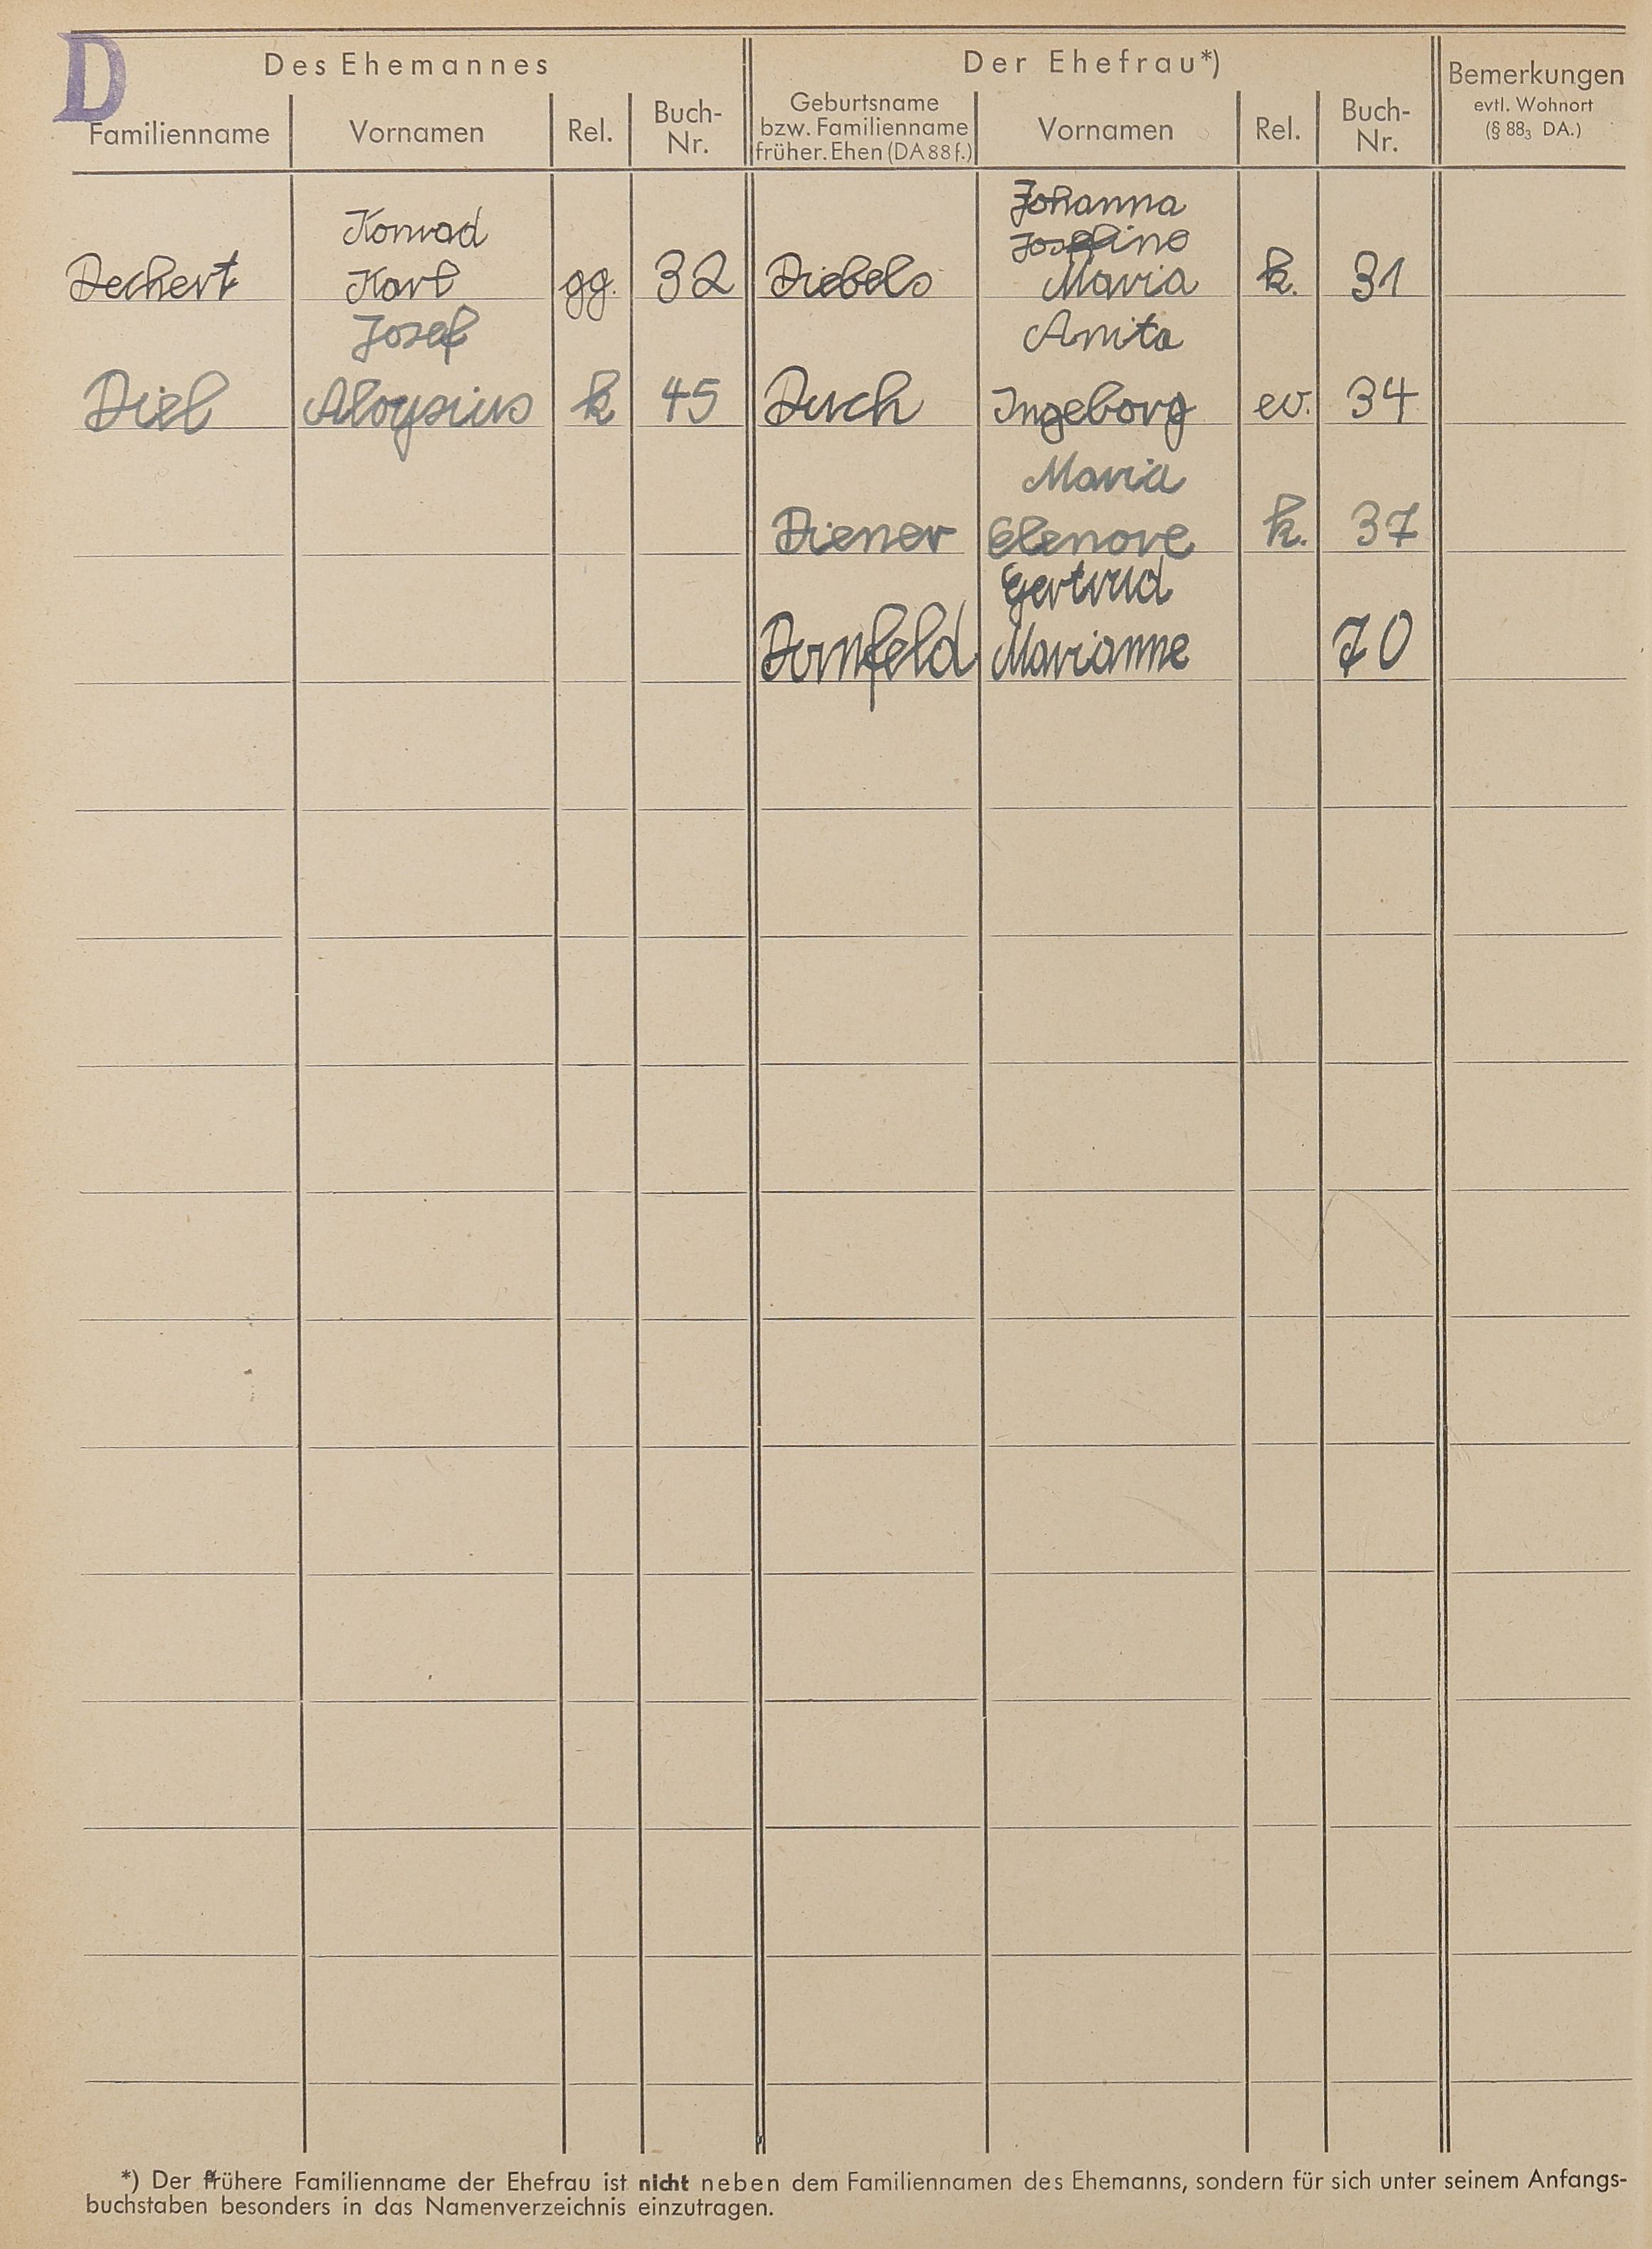 D
Des Ehemannes
Der Ehefrau*)
Bemerkungen
evtl. Wohnort
(§ 88₃ DA.)
Familienname
Vornamen
Rel.
Buch-
Nr.
Geburtsname
bzw. Familienname
früher. Ehen (DA 88 f.)
Vornamen
Rel.
Buch-
Nr.
Konrad
Johanna
Josefine
Dechert Karl gg. 32 Diebels Maria k. 31
Josef Anita
Diel Aloysius k 45 Duch Ingeborg ev. 34
Maria
Diener Elenore k. 37
Gertrud
Dornfeld Marianne 70
*) Der frühere Familienname der Ehefrau ist nicht neben dem Familiennamen des Ehemanns, sondern für sich unter seinem Anfangs-
buchstaben besonders in das Namenverzeichnis einzutragen.